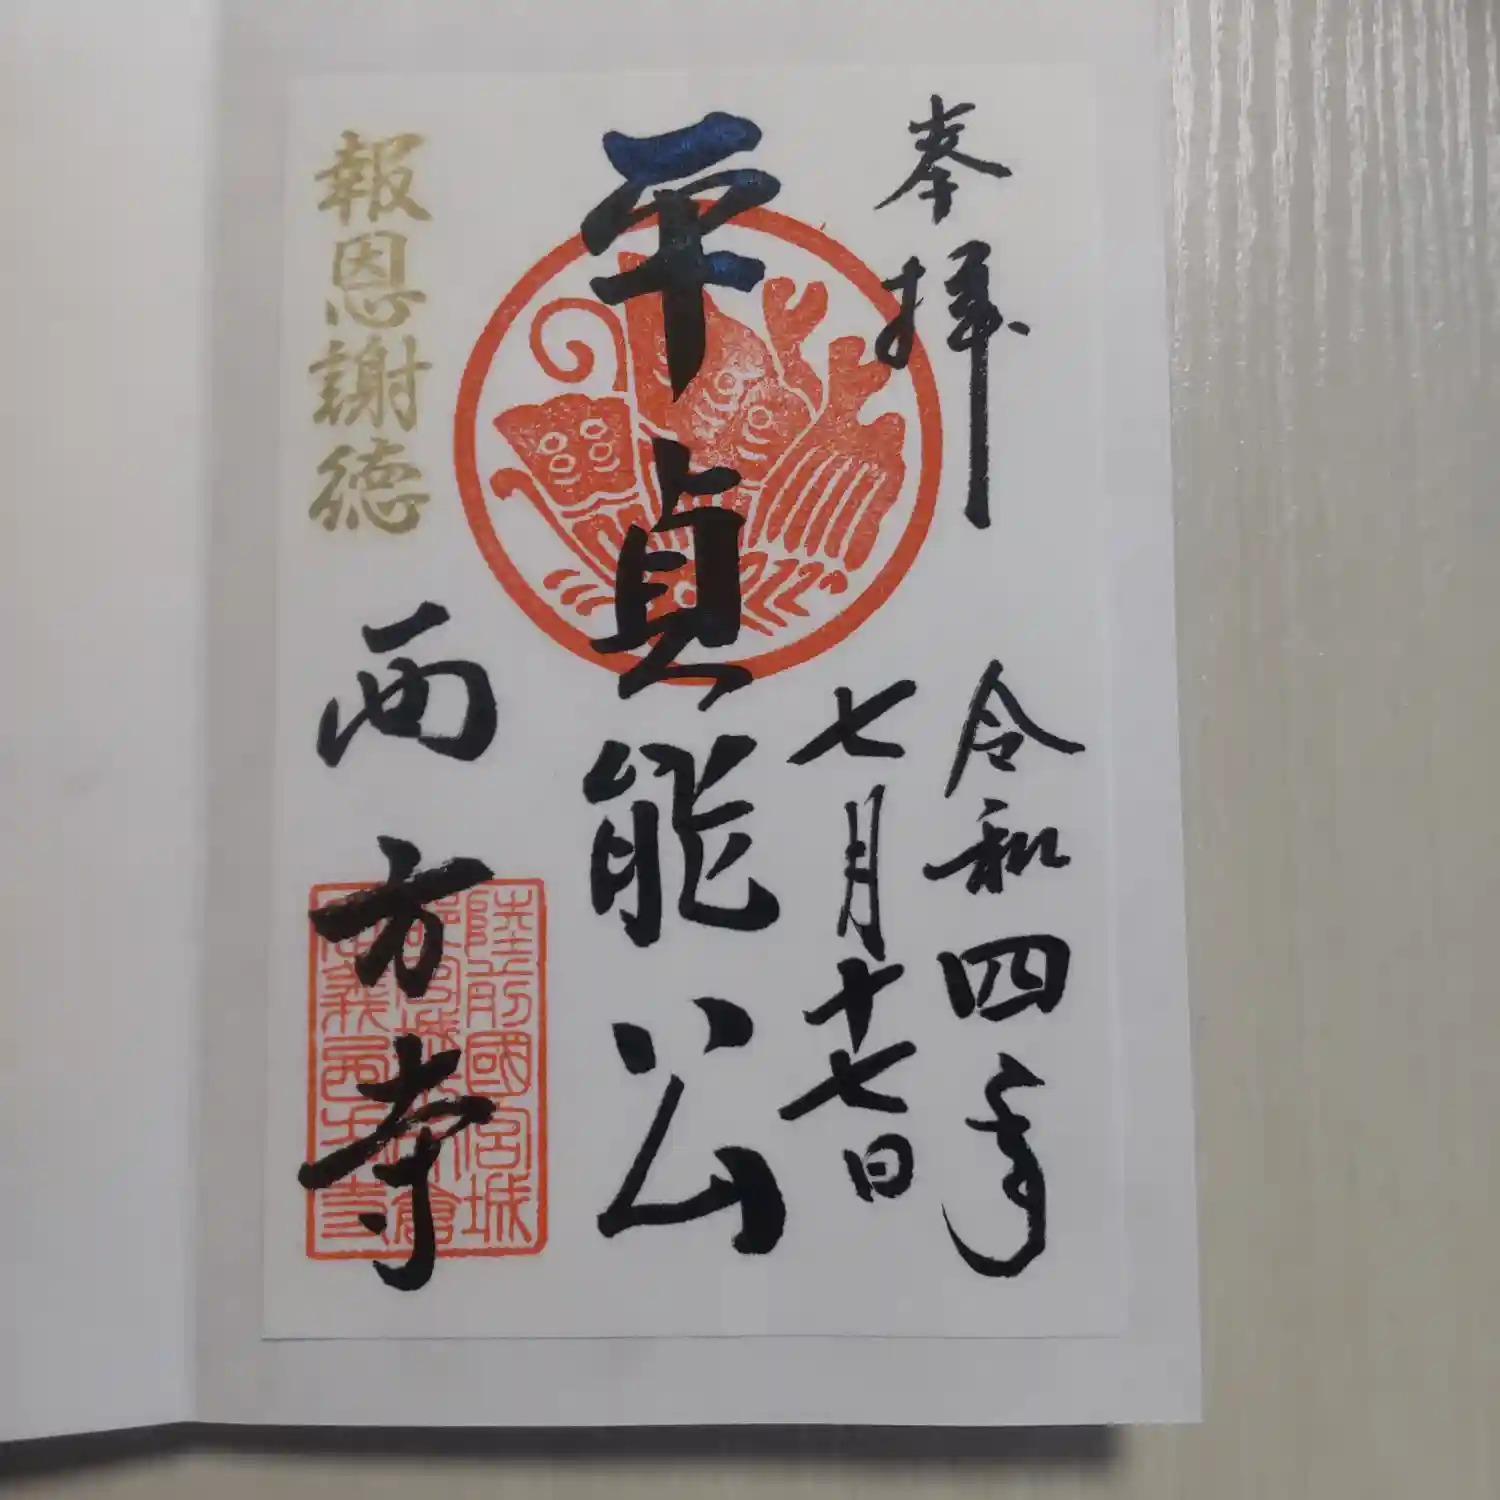 奉拝
令和四年
七月十七日
平貞能公
報恩謝徳
西方寺
陸前國宮城